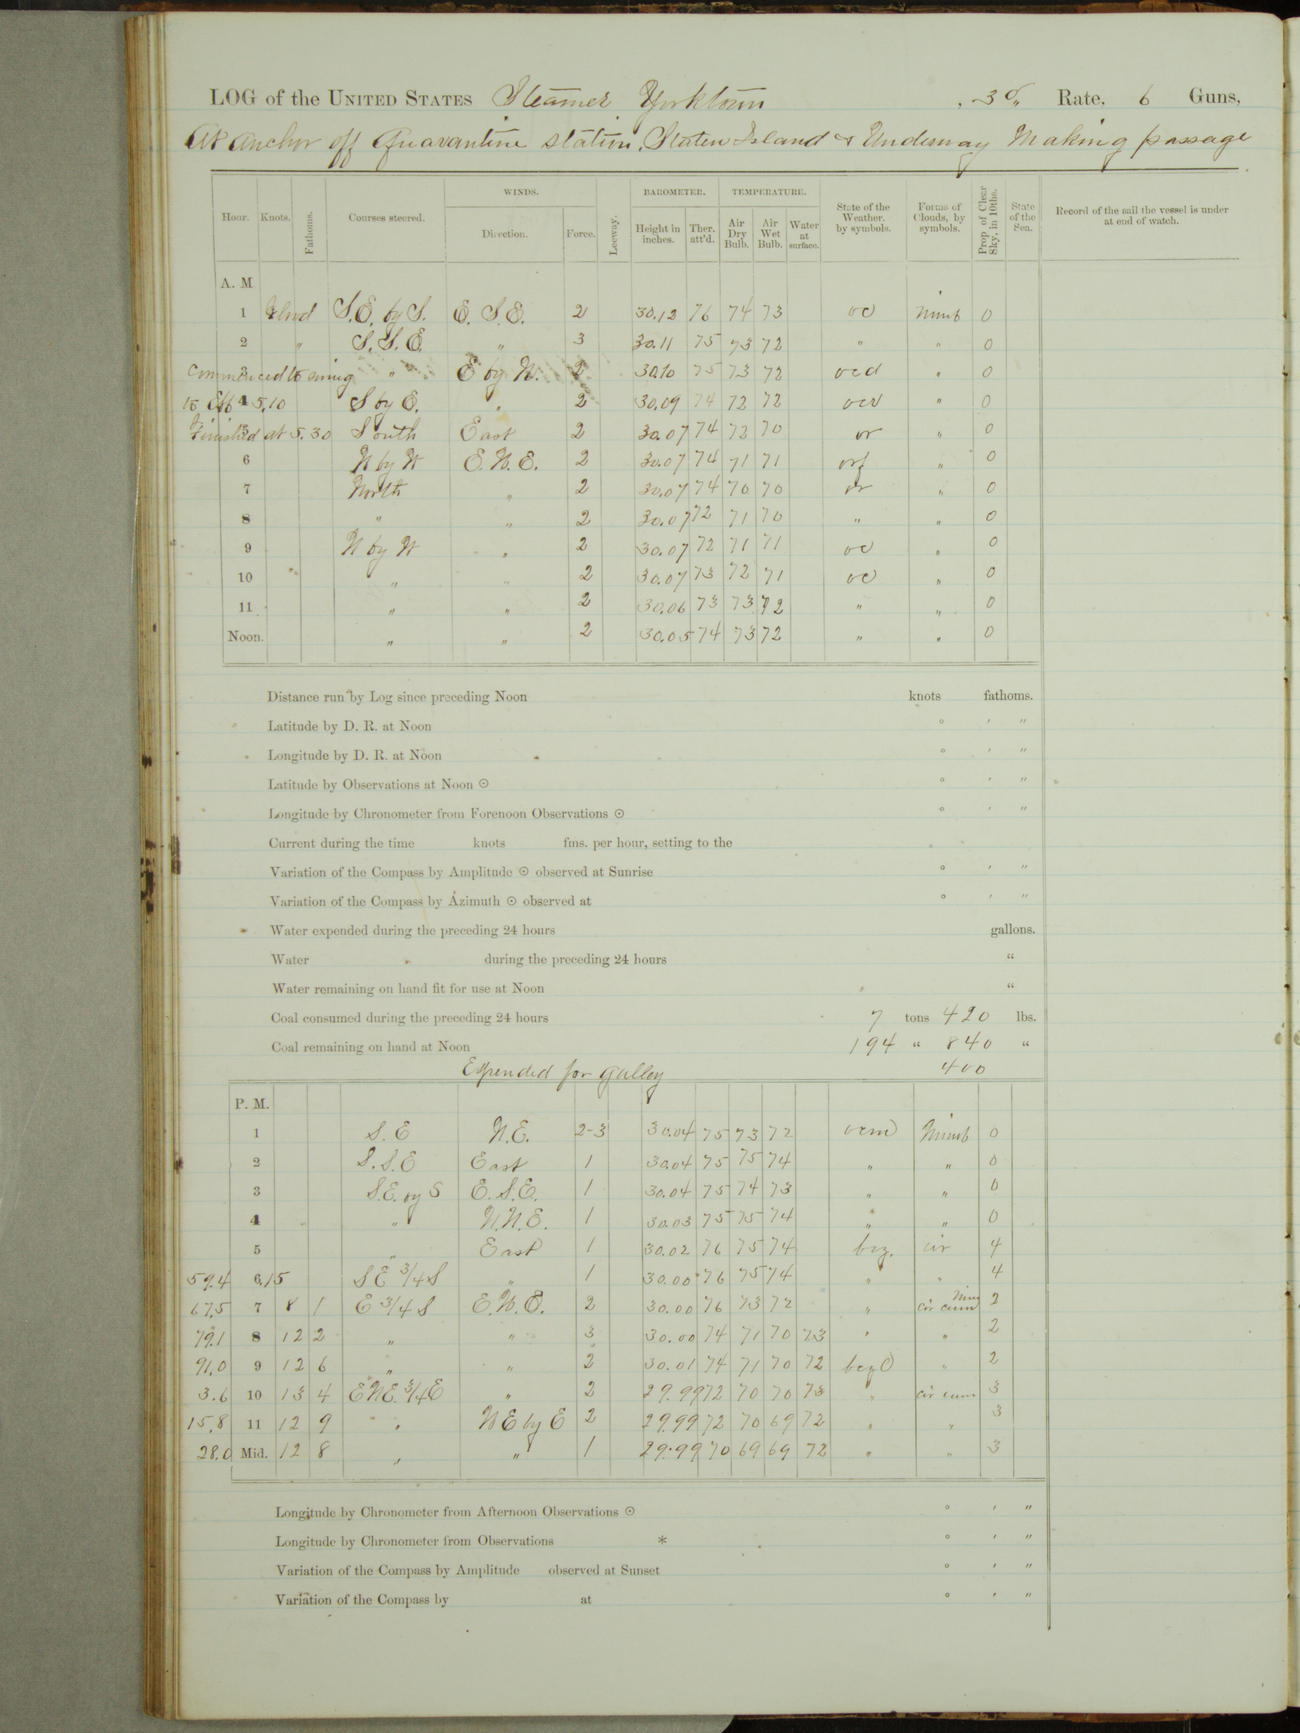 LOG of the UNITED STATES Steamer Yorktown, 3d Rate, 6 Guns,
At Anchor off Quarantine station, Staten Island & Underway Making passage
Hour. Knots. Fathoms. Courses steered. WINDS. Direction. Force. Leeway. BAROMETER. Height in inches. Ther. att'd. TEMPERATURE. Air Dry Bulb. Air Wet Bulb. Water at surface. State of the Weather. by symbols. Forms of Clouds, by symbols. Prop of Clear Sky, in 10ths. State of the Sea. Record of the sail the vessel is under at end of watch.
A. M
1 S.E. by S. E. S.E. 2 30.12 76 74 73 oc Nimb 0
2 " S. S. E. " 3 30.11 75 73 72 " " 0
Commenced to swing " E by N. 2 30.10 75 73 72 ocd " 0
to Ebb 4 5.10 S by E. " 2 30.09 74 72 72 " 0
Finished at 5.30 South East 2 30.07 74 72 70 or " 0
6 N by W E. N. E. 2 30.07 74 71 71 " 0
7 North " 2 30.07 74 70 70 or " 0
8 " " 2 30.07 72 71 70 " " 0
9 N by W " 2 30.07 72 71 71 oc " 0
10 " " 2 30.07 73 72 71 oc " 0
11 " " 2 30.06 73 73 72 " " 0
Noon. " " 2 30.05 74 73 72 " " 0
Distance run by Log since preceding Noon knots fathoms.
Latitude by D. R. at Noon ° ′ ″
Longitude by D. R. at Noon ° ′ ″
Latitude by Observations at Noon ☉ ° ′ ″
Longitude by Chronometer from Forenoon Observations ☉ ° ′ ″
Current during the time knots fms. per hour, setting to the
Variation of the Compass by Amplitude ☉ observed at Sunrise ° ′ ″
Variation of the Compass by Azimuth ☉ observed at ° ′ ″
Water expended during the preceding 24 hours gallons.
Water during the preceding 24 hours "
Water remaining on hand fit for use at Noon "
Coal consumed during the preceding 24 hours 7 tons 420 lbs.
Coal remaining on hand at Noon 194 " 840 "
Expended for galley 400
P. M.
1 S. E N.E. 2-3 30.04 75 73 72 ocm Nimb 0
2 S. S. E East 1 30.04 75 75 74 " " 0
3 S.E. by S E. S.E. 1 30.04 75 74 73 " " 0
4 " N.N.E. 1 30.03 75 75 74 " " 0
5 " East 1 30.02 76 75 74 bcz. cir 4
59.4 6.15 S E 3/4 S " 1 30.00 76 75 74 " " 4
67.5 7 8 1 E 3/4 S E. N. E. 2 30.00 76 73 72 " cir cum Nim 2
79.1 8 12 2 " " 3 30.00 74 71 70 73 " " 2
91.0 9 12 6 " " 2 30.01 74 71 70 72 " 2
3.6 10 13 4 ENE 3/4 E " 2 29.99 72 70 70 73 " cir cum 3
15.8 11 12 9 " N E by E 2 29.99 72 70 69 72 " " 3
28.0 Mid. 12 8 " " 1 29.99 70 69 69 72 " " 3
Longitude by Chronometer from Afternoon Observations ☉ ° ′ ″
Longitude by Chronometer from Observations * ° ′ ″
Variation of the Compass by Amplitude observed at Sunset ° ′ ″
Variation of the Compass by at ° ′ ″